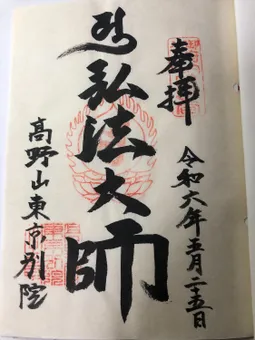 奉拝
令和六年五月二五日
弘法大師
高野山東京別院